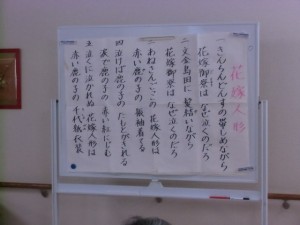 花嫁人形
一 きんらんどんすの帯しめながら
花嫁御寮は なぜ泣くのだろ
二 文金島田に 髪結いながら
花嫁御寮は なぜ泣くのだろ
三 あねさんごっこの 花嫁人形は
赤い鹿の子の 振袖着てる
四 泣けば鹿の子の たもとがきれる
涙で鹿の子の 赤い紅にじむ
五 泣くに泣かれぬ 花嫁人形は
赤い鹿の子の 千代紙衣裳